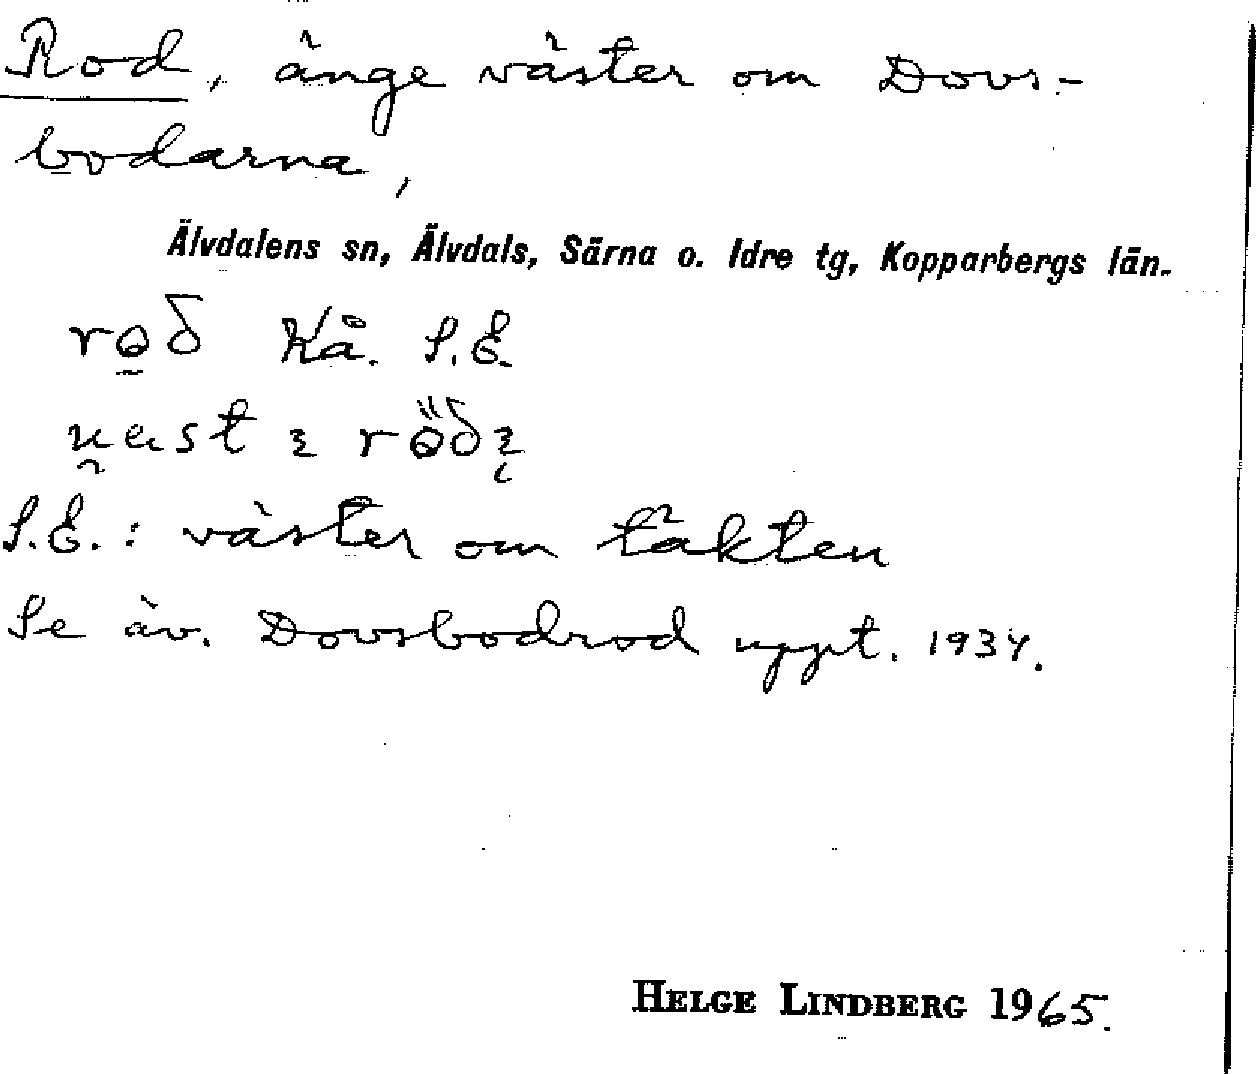 Rod, änge väster om Dovs-
bodarna,
Älvdalens sn, Älvdals, Särna o. Idre tg, Kopparbergs län.
Kå. S.E.
S.E.: väster om täkten
Se äv. Dovsbodrod uppt. 1934.
HELGE LINDBERG 1965.